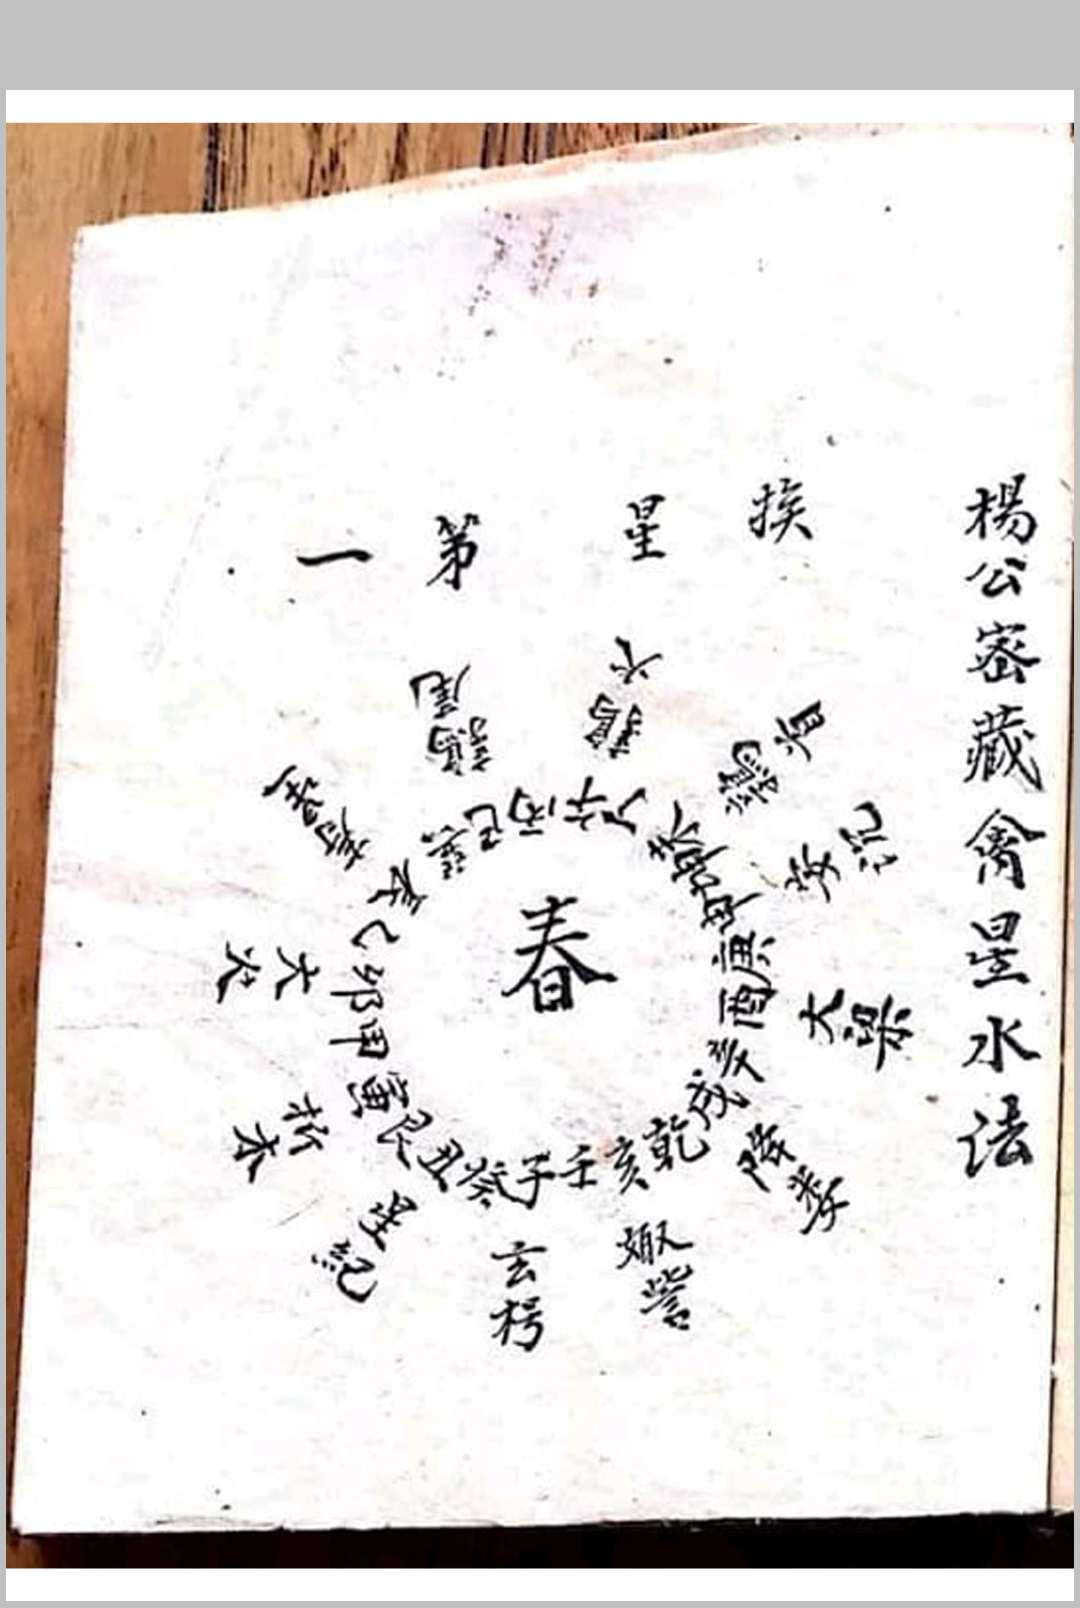 楊公密藏禽星水法
挨星第一
春
子壬亥乾戌辛酉庚申坤未丁午丙巳巽辰乙卯甲寅艮丑癸
玄枵
娵訾
降婁
大梁
實沉
鶉首
鶉火
鶉尾
壽星
大火
析木
星紀